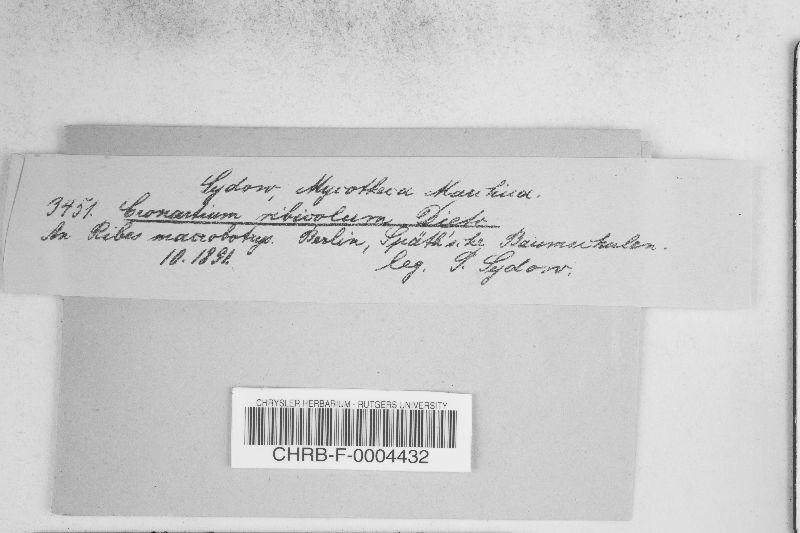 Sydow, Mycotheca Marchica.
3451. Cronartium ribicolum Dietr.
An Ribes macrobotrys. Berlin, Späth'sche Baumschulen.
10. 1891. leg. P. Sydow.
CHRYSLER HERBARIUM - RUTGERS UNIVERSITY
CHRB-F-0004432